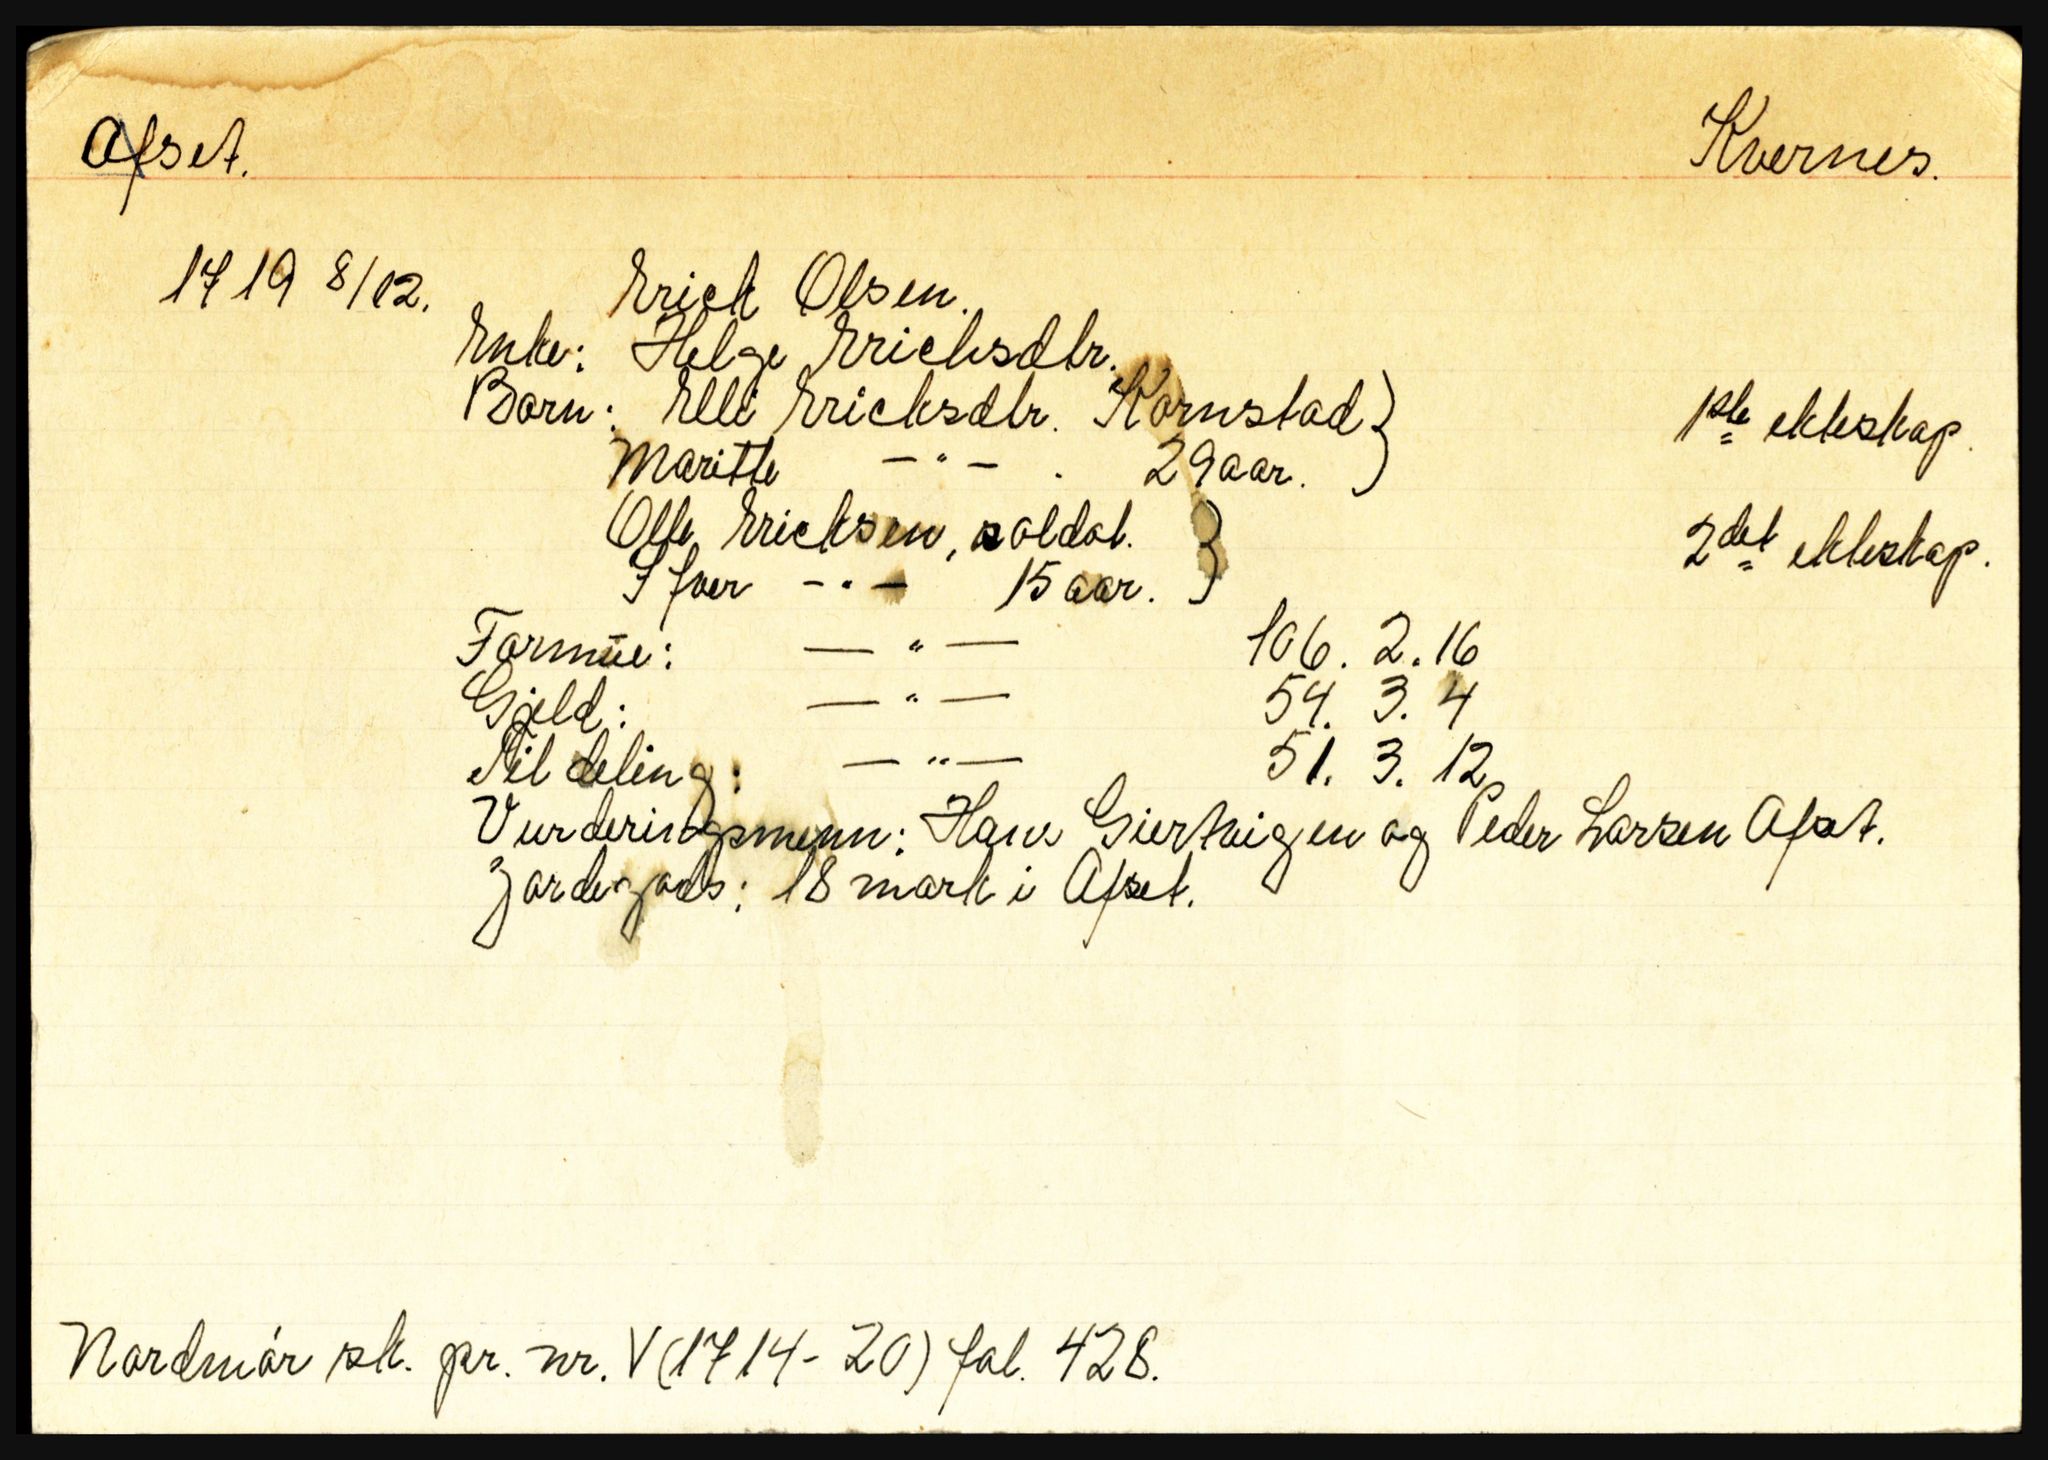 Afset. Kvernes.
1719 8/12. Erick Olsen.
Enke: Helge Ericksdtr.
Born: Elli Ericksdtr. Kornstad } 1ste ekteskap.
Maritte —"— . 29 aar.
Olle Ericksen, soldat. } 2det ekteskap.
Ifver —"— 15 aar.
Formúe: —"— 106. 2. 16
Gjeld: —"— 54. 3. 4
Til deling: —"— 51. 3. 12
Vurderingsmenn: Hans Giertvigen og Peder Larsen Afset.
Jordegods: 18 mark i Afset.
Nordmór sk. pr. nr. V (1714-20) fol. 428.